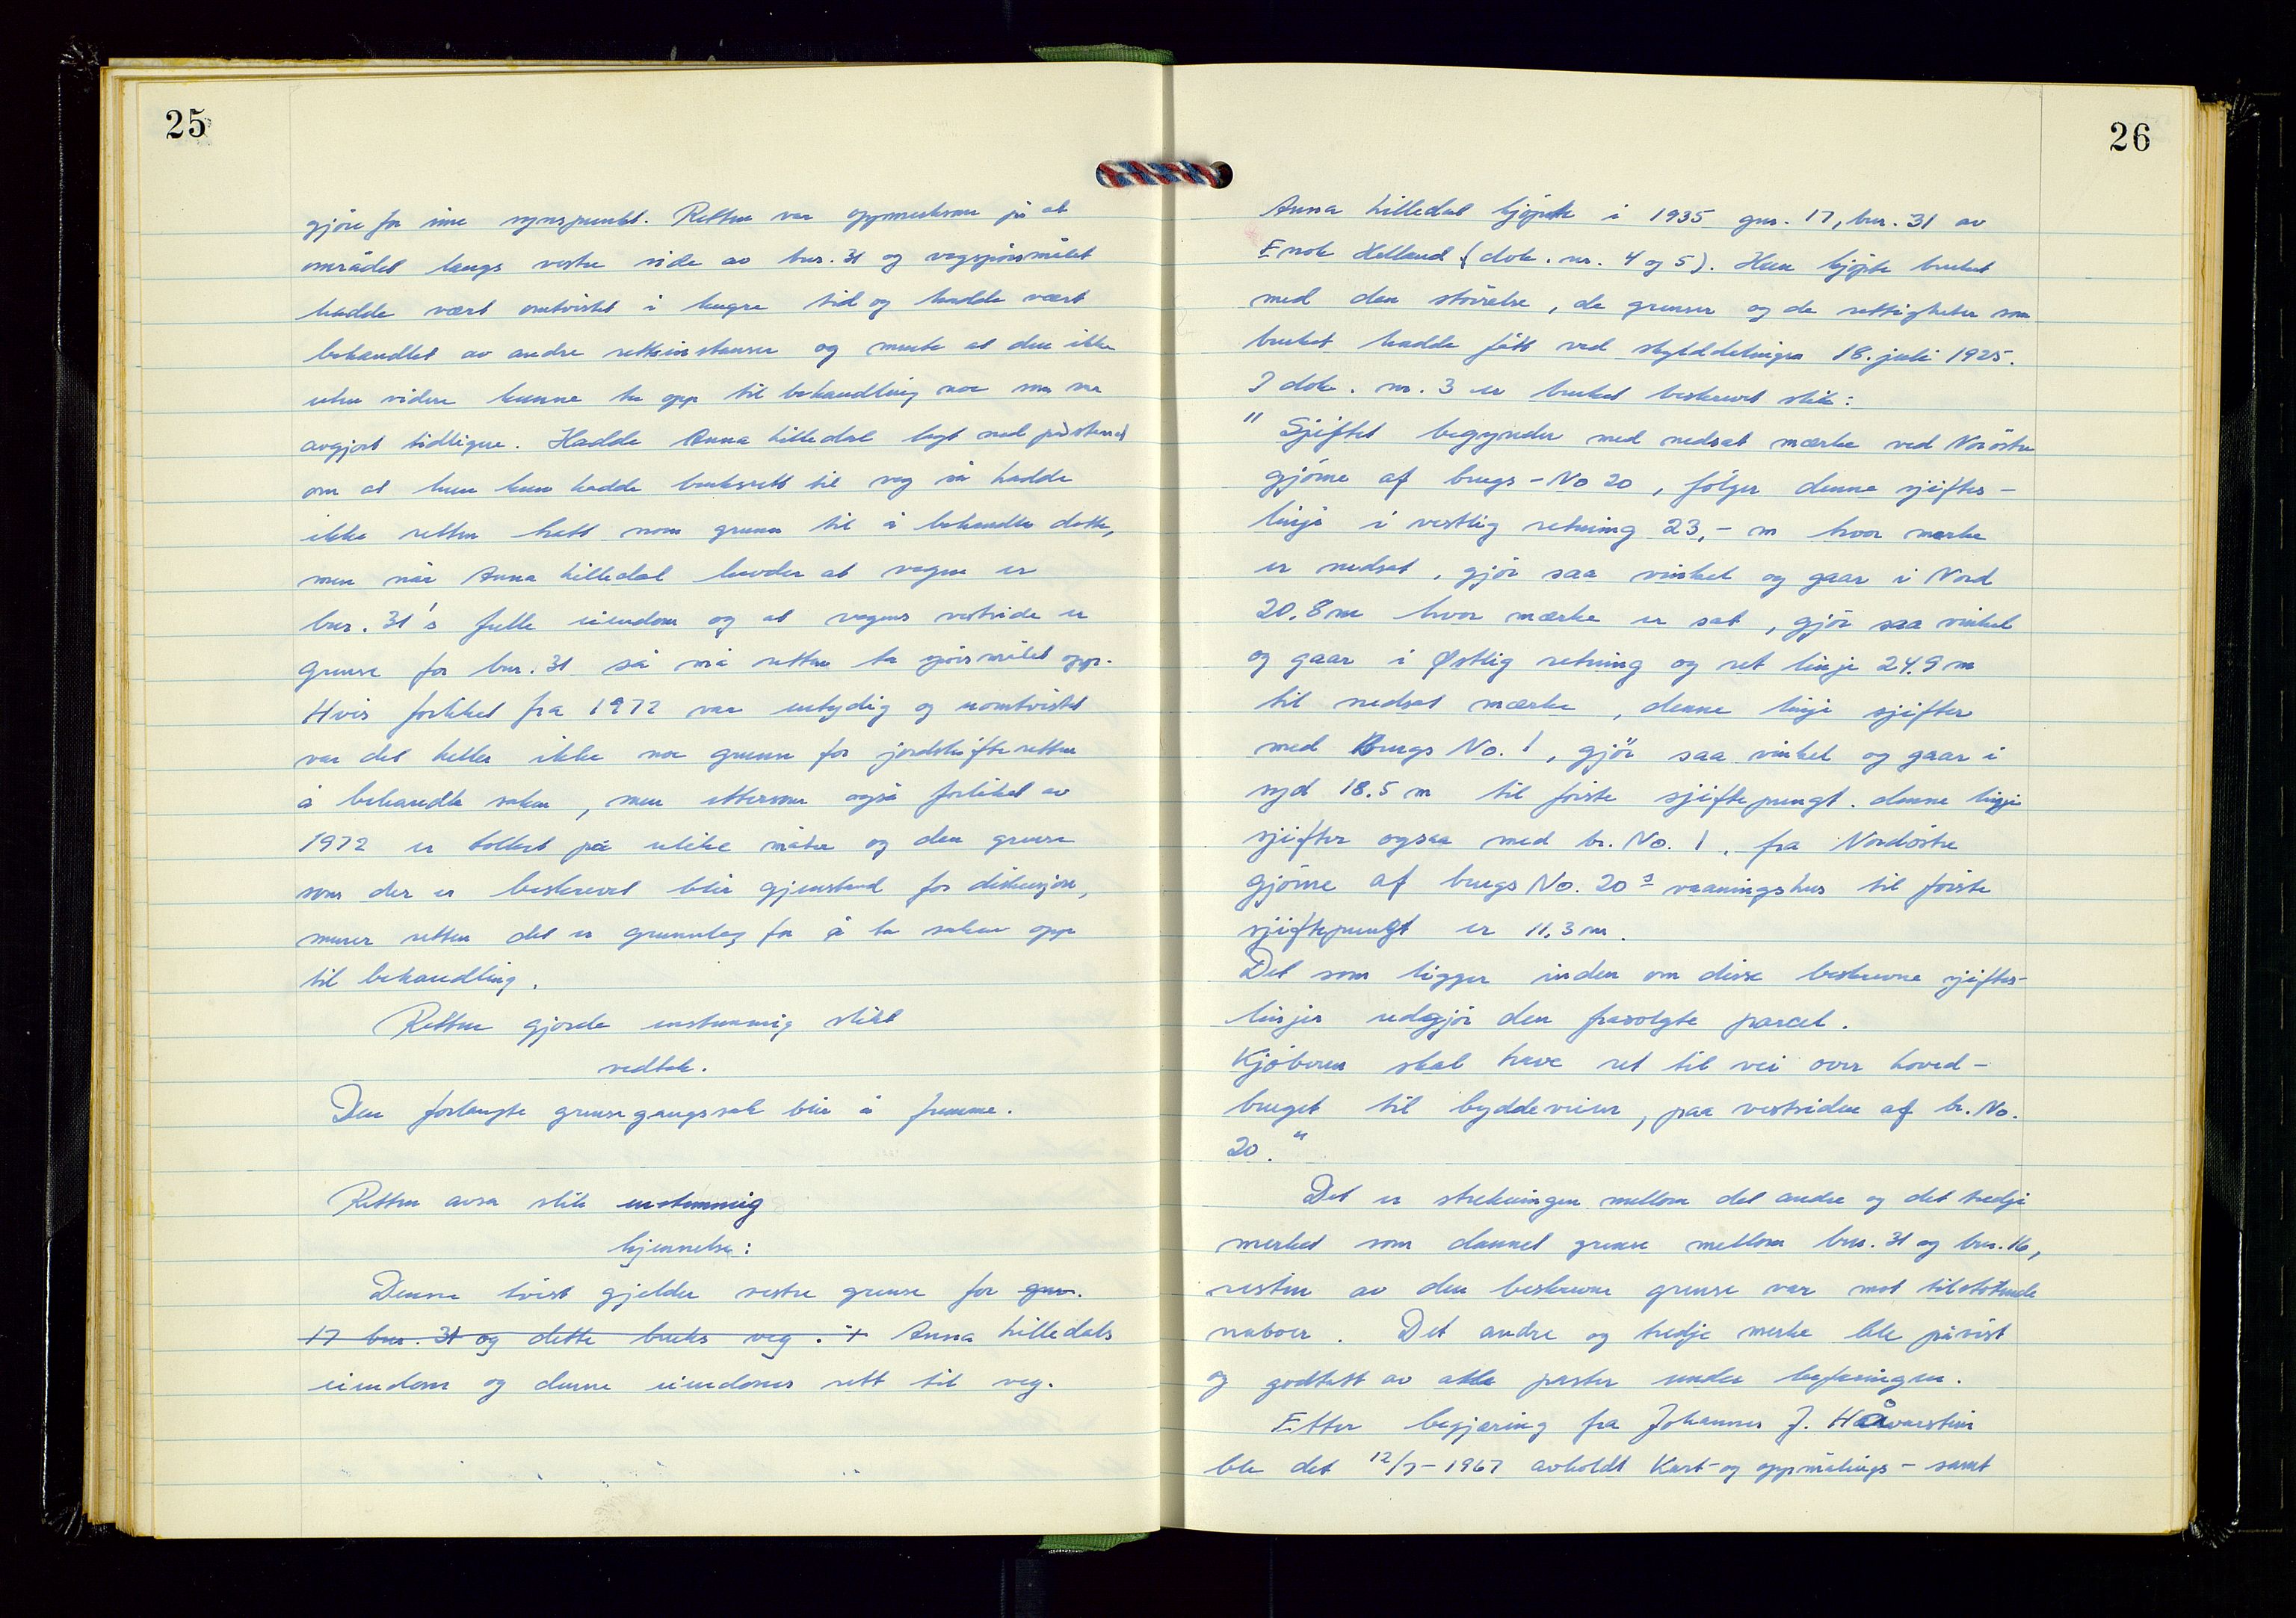 25
gjöre for sine synspunkt. Retten var oppmerksom på at
området langs vestre side av bnr. 31 og vegspörsmålet
hadde vært omtvistet i lengre tid og hadde vært
behandlet av andre rettsinstanser og mente at den ikke
uten videre kunne ta opp til behandling noe som var
avgjort tidligere. Hadde Anna Lilledal lagt ned påstand
om at hun kun hadde bruksrett til veg så hadde
ikke retten hatt noen grunn til å behandle dette,
men når Anna Lilledal hevder at vegen er
bnr. 31's fulle eiendom og at vegens vestside er
grense for bnr. 31 så må retten ta spörsmålet opp.
Hvis forliket fra 1972 var entydig og uomtvistet
var det heller ikke noe grunn for jordskifteretten
å behandle saken, men ettersom også forliket av
1972 er tolket på ulike måter og den grense
som der er beskrevet blir gjenstand for diskusjon,
mener retten det er grunnlag for å ta saken opp
til behandling.
Retten gjorde enstemmig slikt
vedtak.
Den forlangte grensegangssak blir å fremme.
Retten avsa slik enstemmig
kjennelse:
Denne tvist gjelder vestre grense for gnr.
17 bnr. 31 og dette bruks veg. + Anna Lilledals
eiendom og denne eiendoms rett til veg.
26
Anna Lilledal kjöpte i 1935 gnr. 17, bnr. 31 av
Enok Helland (dok. nr. 4 og 5). Hun kjöpte bruket
med den störrelse, de grenser og de rettigheter som
bruket hadde fått ved skylddelingen 18. juli 1925.
I dok. nr. 3 er bruket beskrevet slik:
"Sjiftet begynder med nedsat mærke ved Noröstre
gjörne af brugs-No 20, fölger denne sjiftes-
linje i vestlig retning 23,- m hvor merke
er nedsat, gjör saa vinkel og gaar i Nord
20.8 m hvor mærke er sat, gjör saa vinkel
og gaar i Østlig retning og ret linje 24.9 m
til nedsat mærke, denne linje sjifter
med Brugs No. 1, gjör saa vinkel og gaar i
syd 18.5 m til förste sjiftepungt. denne linje
sjifter ogsaa med br. No. 1. fra Nordöstre
gjörne af brugs No. 20s vaaningshus til förste
sjiftepungt er 11.3 m.
Det som ligger inden om disse beskrevne sjiftes-
linjer udgjör den frasolgte parcel.
Kjöberen skal have ret til vei over hoved-
bruget til bygdeveien, paa vestsiden af br. No.
20."
Det er strekningen mellom det andre og det tredje
merket som dannet grense mellom bnr. 31 og bnr. 16,
resten av den beskrevne grense var mot tilstötende
naboer. Det andre og tredje merke ble påvist
og godtatt av alle parter under befaringen.
Etter begjæring fra Johannes J. Håvarstein
ble det 12/7-1967 avholdt Kart- og oppmålings- samt